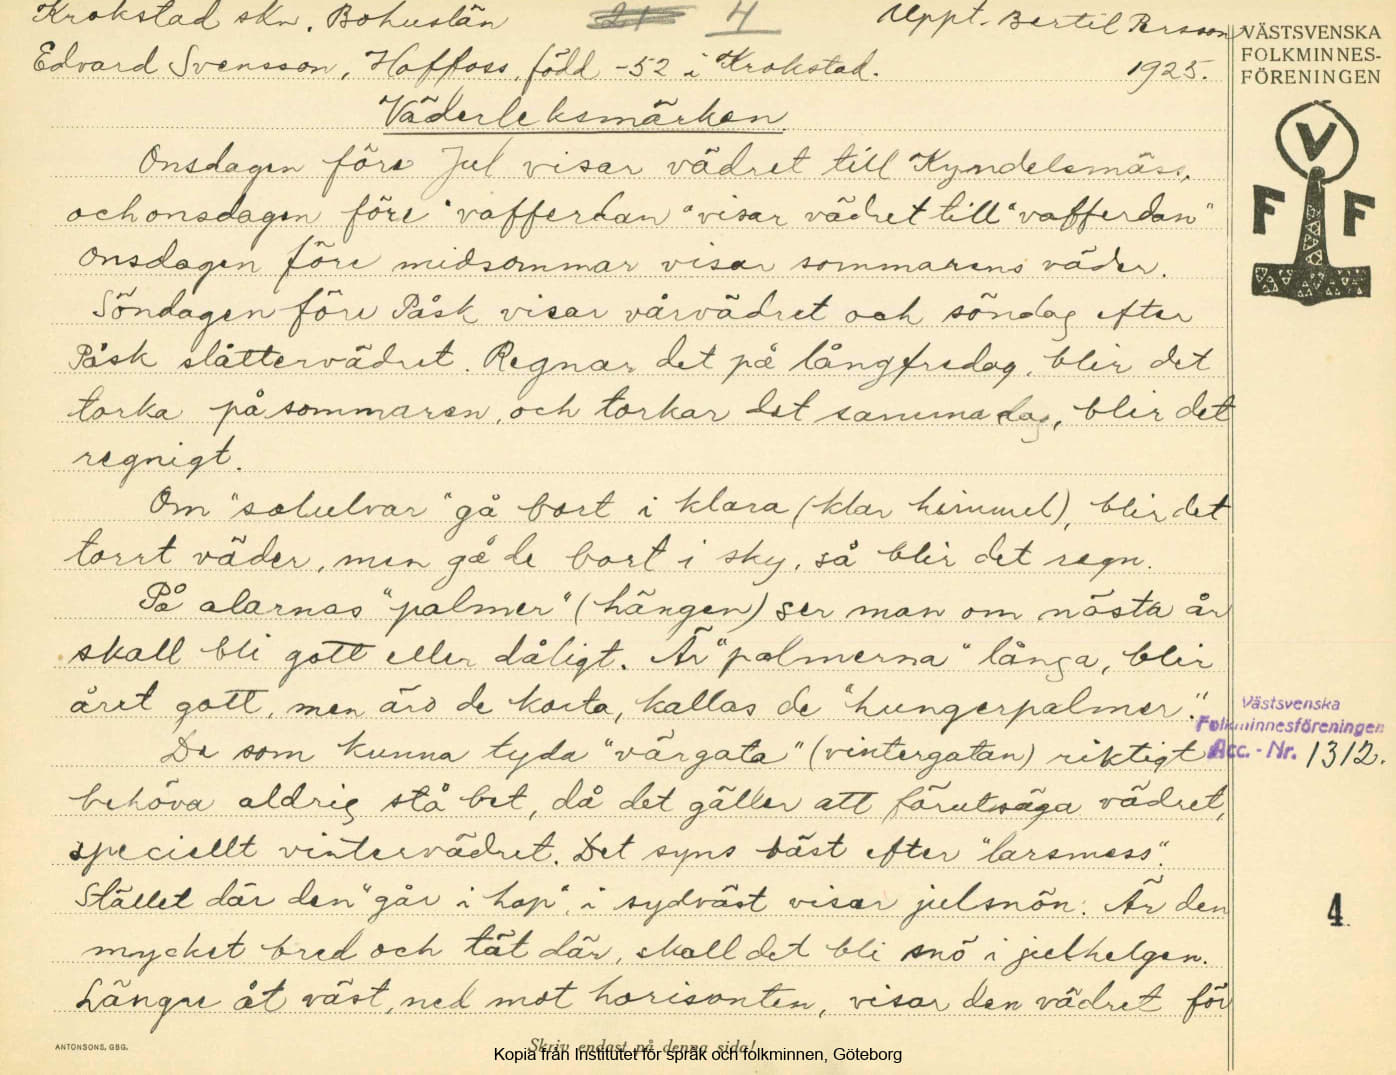 Krokstad skn, Bohuslän 4 Uppt. Bertil Persson
Edvard Svensson, Hoffoss, född -52 i Krokstad. 1925.
VÄSTSVENSKA
FOLKMINNES-
FÖRENINGEN
V
F F
Väderleksmärken
Onsdagen före Jul visar vädret till Kyndelsmäss,
och onsdagen före "vafferdan" visar vädret till "vafferdan"
Onsdagen före midsommar visar sommarens väder.
Söndagen före Påsk visar vårvädret och söndag efter
Påsk slåttervädret. Regnar det på långfredag, blir det
torka på sommaren, och torkar det samma dag, blir det
regnigt.
Om "solulvar" gå bort i klara (klar himmel), blir det
torrt väder, men gå de bort i sky, så blir det regn.
På alarnas "palmer" (hängen) ser man om nästa år
skall bli gott eller dåligt. Är "palmerna" långa, blir
året gott, men äro de korta, kallas de "hungerpalmer."
De som kunna tyda "värgata" (vintergatan) riktigt
behöva aldrig stå bet, då det gäller att förutsäga vädret,
speciellt vintervädret. Det syns bäst efter "larsmess".
Stället där den "går i hop", i sydväst visar julsnön. Är den
mycket bred och tät där, skall det bli snö i julhelgen.
Längre åt väst, ned mot horisonten, visar den vädret för
Västsvenska
Folkminnesföreningen
Acc. - Nr. 1312.
4.
ANTONSONS, GBG.
Skriv endast på denna sida!
Kopia från Institutet för språk och folkminnen, Göteborg